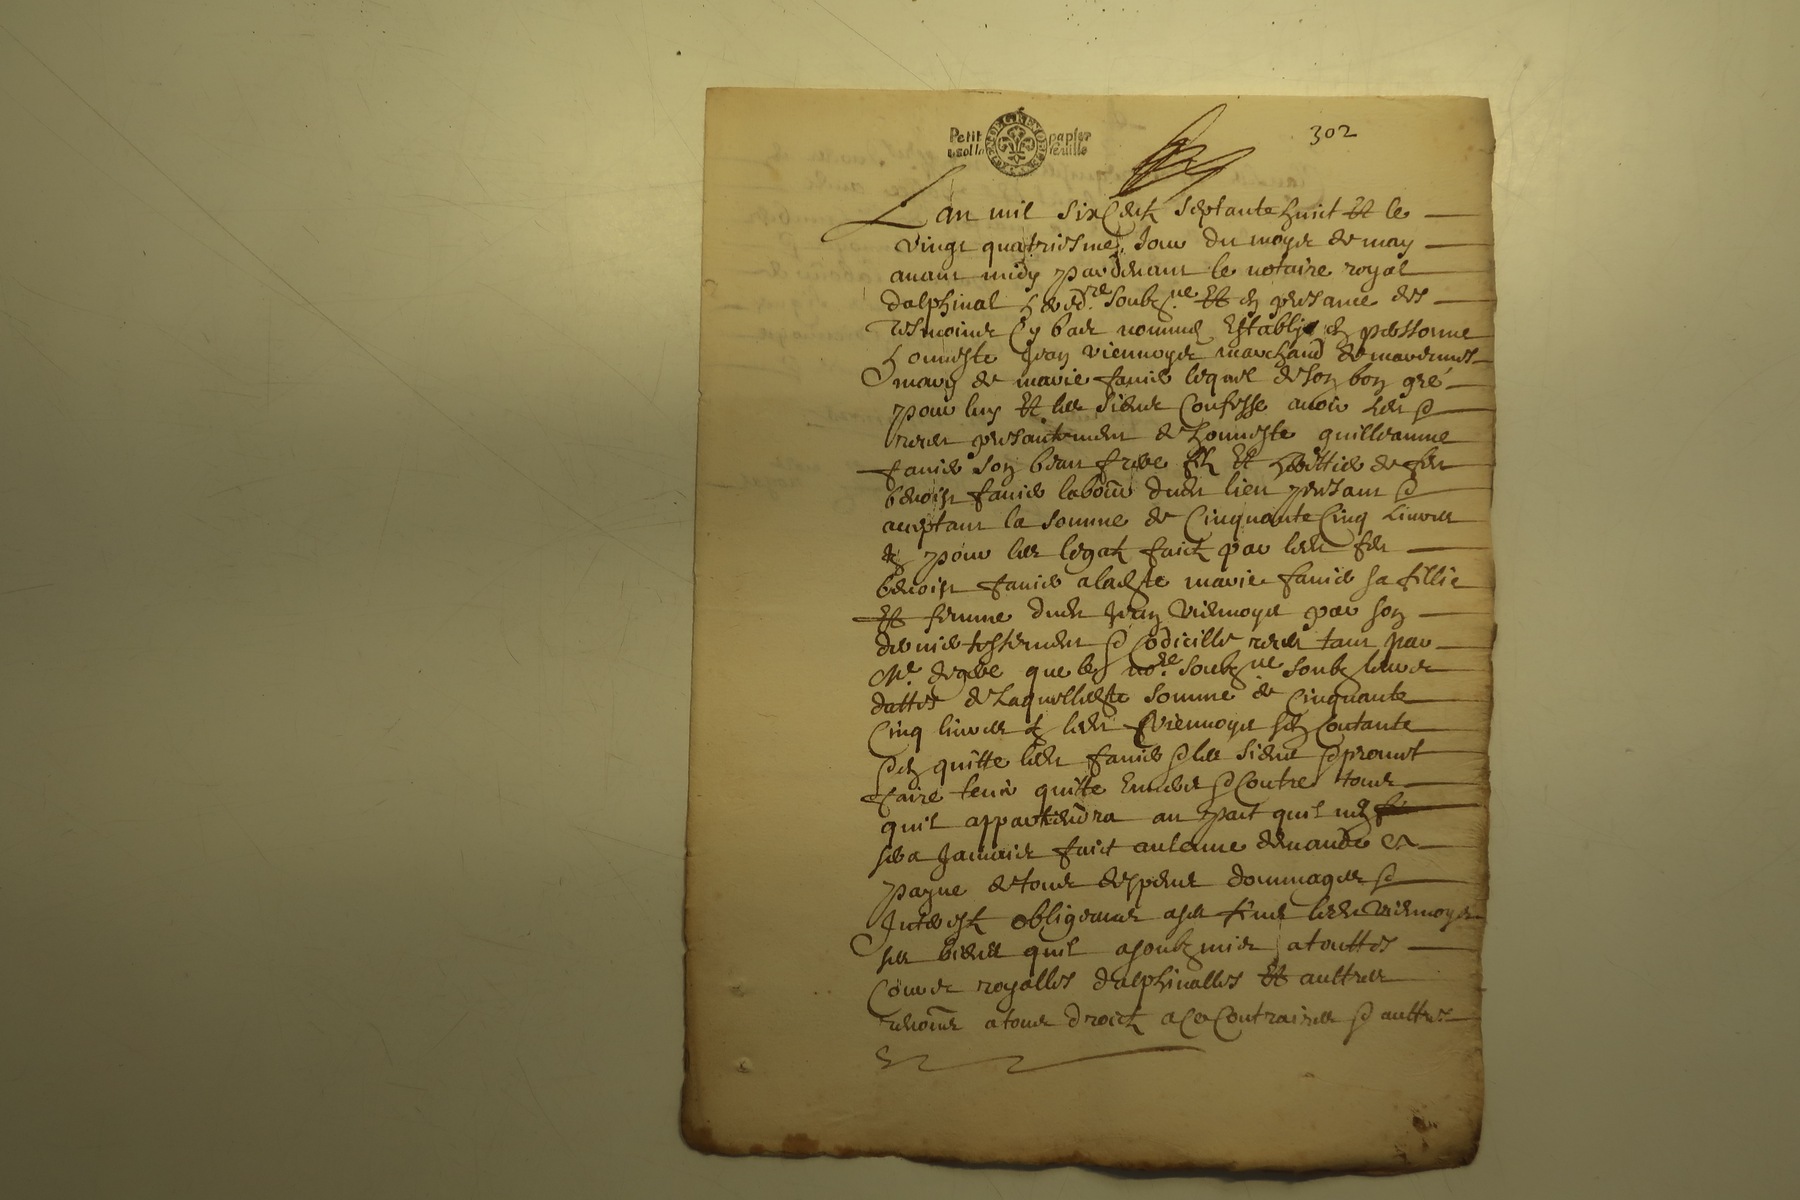 Petit papier
un sol la feuille
302
Lan mil six cent septante huict et le
vingt quatriesme jour du moys de may
avant midy pardevant le notaire royal
dalphinal soubne et en presance des
tesmoins cy bas nommes establi en personne
honneste Jean viennoys marchand de
mary de marie favier lequel de son bon gré
pour luy et les siens confesse avoir heu &
receu presantement de honneste guilleaume
favier son beau frere filz et herittier de feu
benoist favier labour dudt lieu presant &
aceptant la somme de cinquante cinq livres
pour les legatz faictz par ledt feu
benoist favier a ladte marie favier sa fillie
et femme dudt Jean viennoys par son
dernier testement & codicille receu tant par
Me que les nore soubne soubz leurs
dattes de laquelle dte somme de cinquante
cinq livres ledt viennoys sen contante
& en quitte ledt favier & les siens & promet
faire tenir quitte envers & contre tous
quil appartiendra au pact quil nen
sera jamais faict aulcune demande a
payne de tous despens dommages &
interestz obligeant a ses fins ledt viennoys
ses biens quil a soubzmis a touttes
cours royalles dalphinalles et aultres
renoncé a tous droictz a ce contraires & aultres